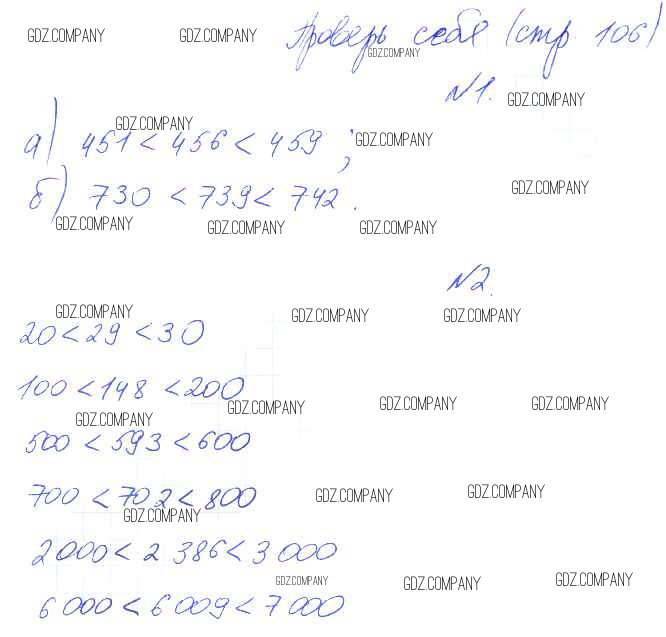 GDZ.COMPANY GDZ.COMPANY Проверь себя (стр 106)
GDZ.COMPANY
№1. GDZ.COMPANY
GDZ.COMPANY
а) 451 < 456 < 459 ; GDZ.COMPANY
б) 730 < 739 < 742. GDZ.COMPANY
GDZ.COMPANY GDZ.COMPANY GDZ.COMPANY
№2.
GDZ.COMPANY GDZ.COMPANY GDZ.COMPANY
20 < 29 < 30
100 < 148 < 200
GDZ.COMPANY GDZ.COMPANY GDZ.COMPANY GDZ.COMPANY
500 < 593 < 600
700 < 702 < 800 GDZ.COMPANY GDZ.COMPANY
GDZ.COMPANY
2 000 < 2 386 < 3 000
GDZ.COMPANY GDZ.COMPANY GDZ.COMPANY
6 000 < 6 009 < 7 000